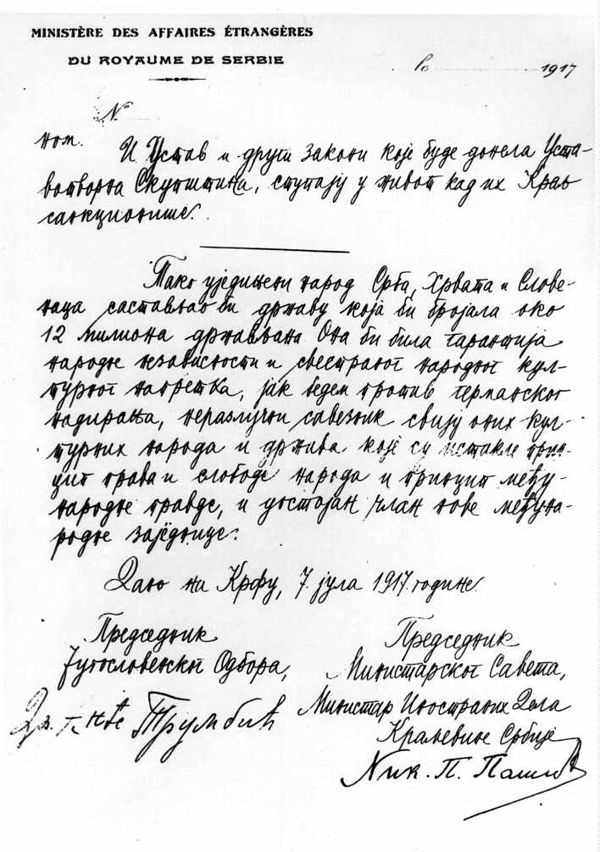 MINISTÈRE DES AFFAIRES ÉTRANGÈRES
DU ROYAUME DE SERBIE
le 1917
N
ном.
И Устав и други закони које буде донела Уста-
вотворна Скупштина, ступају у живот кад их Краљ
санкционише.
Тако уједињени народ Срба, Хрвата и Слове-
наца састављао би државу која би бројала око
12 милиона држављана. Она би била гарантија
народне независности и свестраног народног кул-
турног напретка, јак бедем против германског
надирања, неразлучни савезник свију оних кул-
турних народа и држава које су истакле прин-
цип права и слободе народа и принцип међу-
народне правде, и достојан члан нове међуна-
родне заједнице.
Дано на Крфу, 7. јула 1917. године.
Председник
Југословенског Одбора,
Др. Анте Трумбић
Председник
Министарског Савета,
Министар Иностраних Дела
Краљевине Србије
Ник. П. Пашић